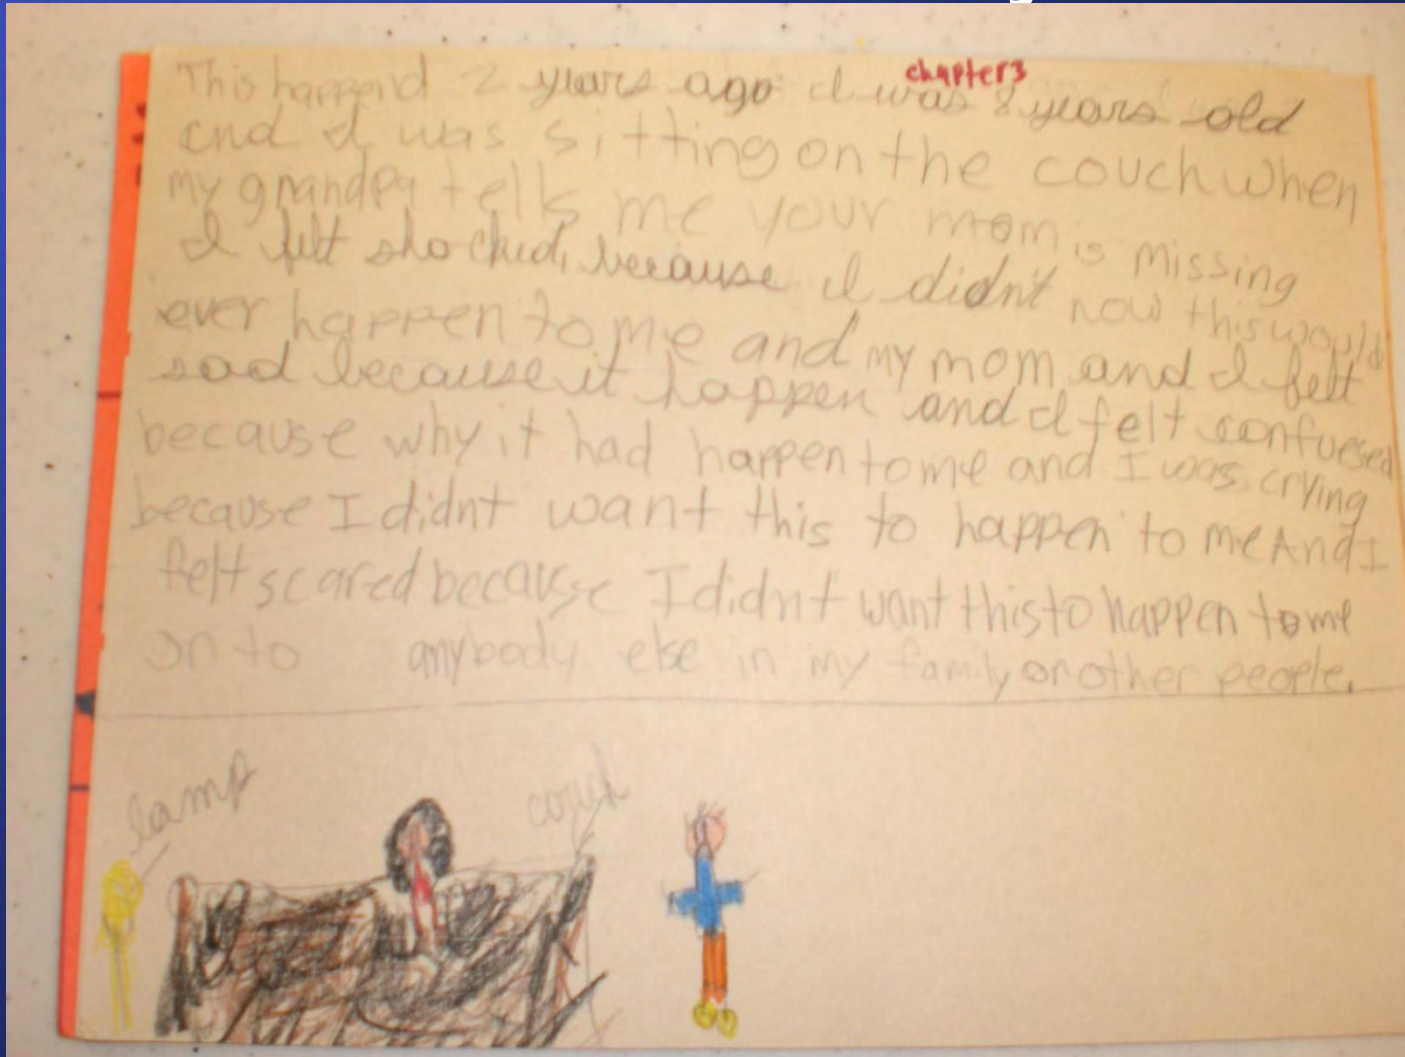 chapter 3
This happend 2 years ago I was 8 years old
and I was sitting on the couch when
my grandpa tells me your mom is missing
I felt shocked, because I didn't now this would
ever happen to me and my mom and I felt
sad because it happen and I felt confuesed
because why it had happen to me and I was crying
because I didnt want this to happen to me And I
felt scared because I didnt want this to happen to me
or to anybody else in my family or other people.
lamp
couch